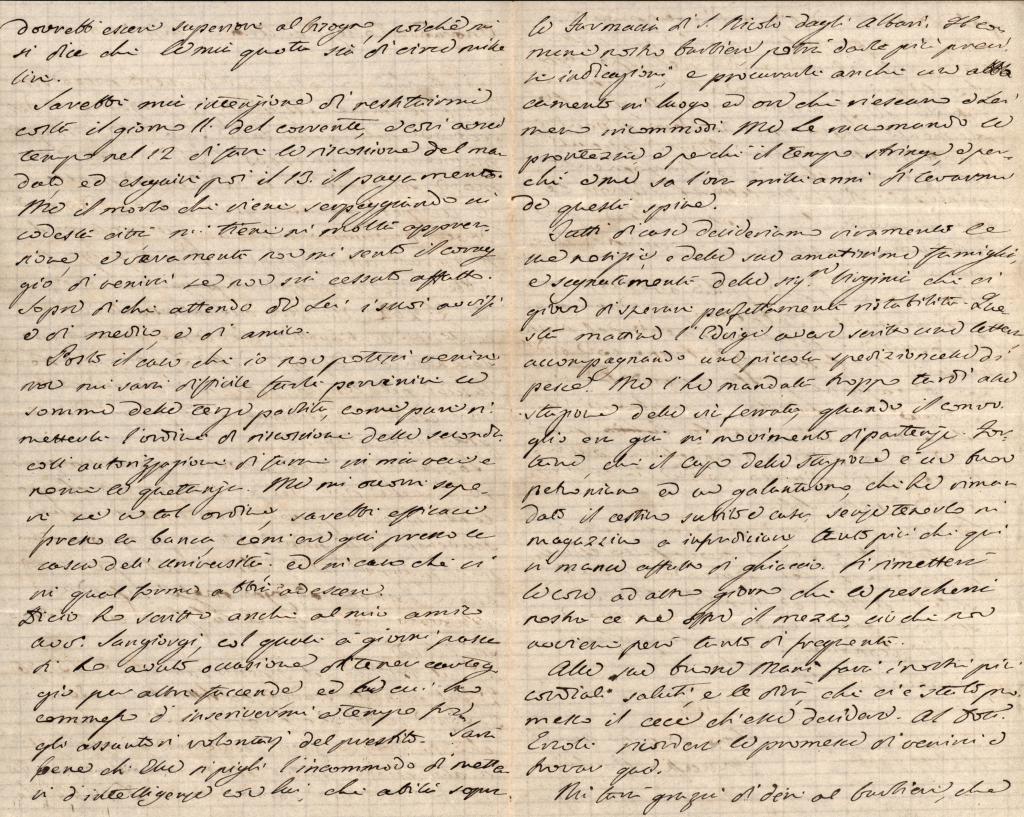 dovrebb' essere superiore al bisogno, poichè mi
si dice che la mia quota sia di circa mille
lire.
Sarebbe mia intenzione di restituirmi
costà il giorno 11. del corrente, e così avrei
tempo nel 12 di fare la riscossione del man-
dato ed eseguire poi il 13. il pagamento.
Ma il morbo che viene serpeggiando in
codesta città mi tiene in molta appren-
sione, e veramente non mi sento il corag-
gio di venirvi se non sia cessato affatto.
Sopra di che attendo da Lei i suoi avvisi
e di medico, e di amico.
Posto il caso che io non potessi venire
non mi sarà difficile farle pervenire la
somma della terza partita, come pure ri-
metterle l'ordine di riscossione della seconda
coll' autorizzazione di farne in mia vece e
nome la quettanza. Ma mi occorre sape-
re se un tal ordine sarebbe efficace
presso la banca com' era qui presso la
cassa dell' Università. ed in caso che sì
in qual forma abbia ad essere.
Di ciò ho scritto anche al mio amico
avv. Sangiorgi, col quale a giorni passa-
ti ho avuto occasione di tener carteg-
gio per altre faccende ed a cui ho
commesso d' inserivermi a tempo fra
gli assuntori volontarj del prestito. Sarà
bene ch' Ella si pigli l' incommodo di metter-
si d' intelligenza con lui, che abita sopra
la Farmacia di S. Nicolò dagli Albari. Il co-
mune nostro barbiere potrà darle più preci-
se indicazioni, e procurarle anche un abboc-
camento in luogo ed ora che riescano a Lei
meno incommodi. Ma Le raccomando la
prontezza e perchè il tempo stringe e per-
chè a me sa l'ora mill' anni di levarmi
da queste spine.
Tutti di casa desideriamo vivamente le
sue notizie, e della sua amatissima famiglia
e segnatamente della sig.ra Virginia che ci
giova di sperare perfettamente ristabilita. Que-
sta mattina l' Edvige aveva scritto una lettera
accompagnando una piccola spedizioncella di
pesce. Ma l' ha mandata troppo tardi alla
stazione della via ferrata, quando il convo-
glio era già in movimento di partenza. For-
tuna, che il capo della stazione è un buon
petroniano ed un galantuomo, che ha riman-
dato il cestino subito a casa, senza tenerlo in
magazzino a infradiciare, tanto più che qui
si manca affatto di ghiaccio. Si rimetterà
la cosa ad altro giorno che la pescheria
nostra ce ne offra il mezzo, ciò che non
avviene però tanto di frequente.
Alla sua buona Mamà farà i nostri più
cordiali saluti, e le dirà, che ci è stato pro-
messo il cece ch' essa desidera. Al Dott.
Ercole ricorderà la promessa di venirci a
trovar qua.
Mi farà grazia di dire al barbiere, che